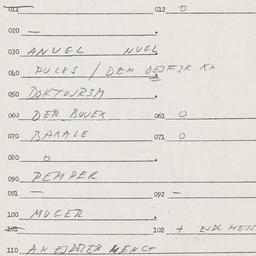 011 012 0
020 —
030 ANUGL NUGL
040 PULES / DEM
050 DOKTOURSM
060 DER BUUEX 061 0
070 BAKALE 071 0
080 0
090 PEMPER
091 — 092 —
100 MUGER
101 102 +
110 AN EJDELER MENCT